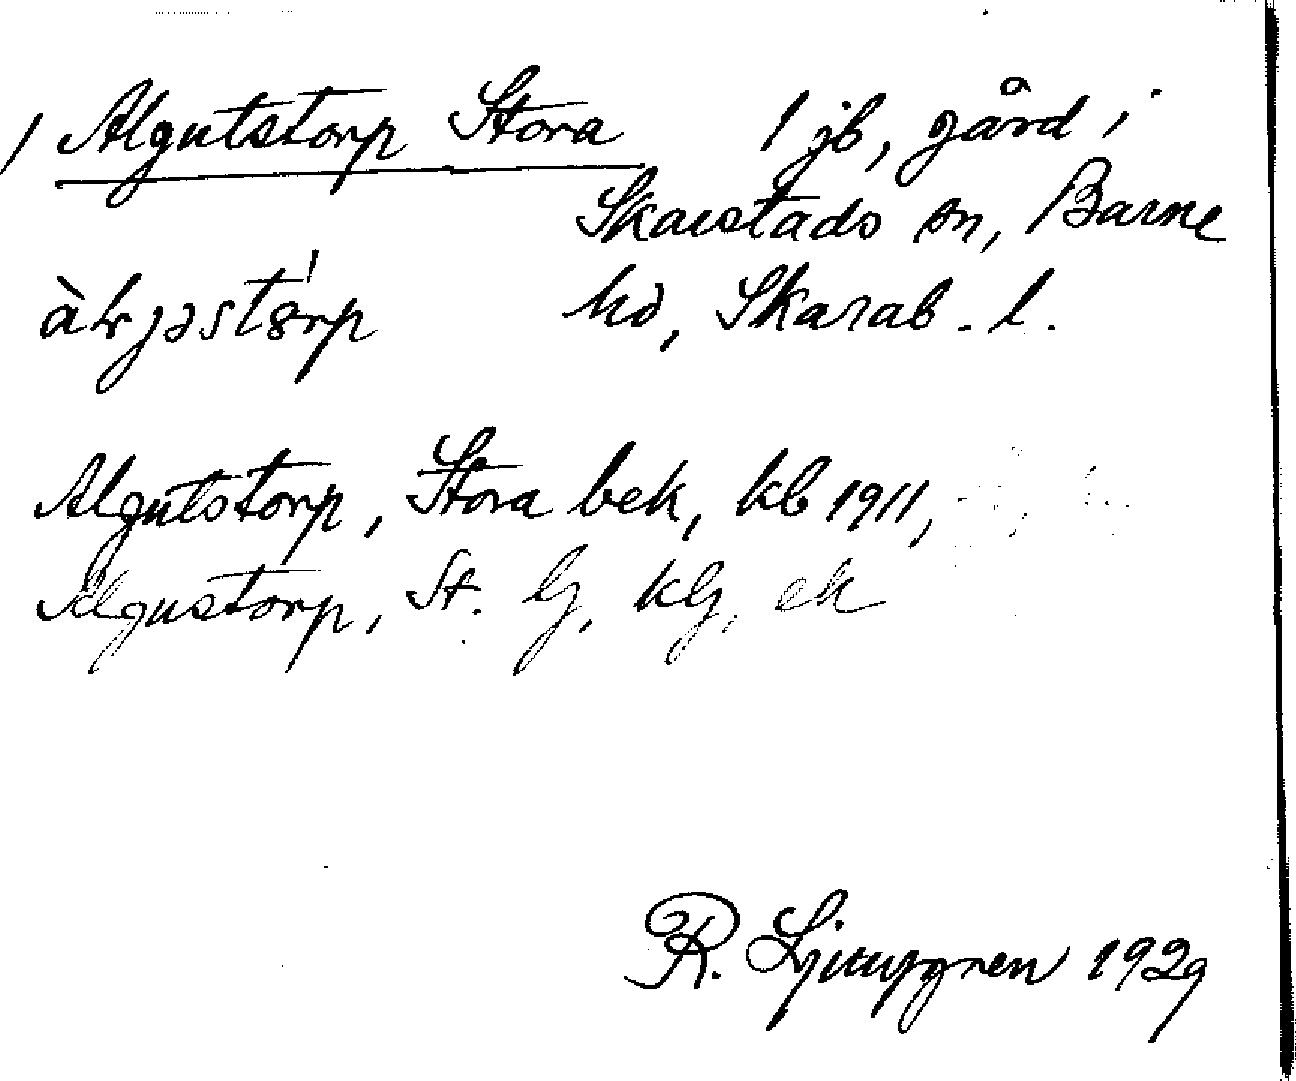 1 Algutstorp Stora 1 jb, gård i
Skarstads sn, Barne
hd, Skarab. l.
Algutstorp, Stora bek, kb 1911,
Algustorp, St. lj, klj, ek
R. Ljunggren 1929